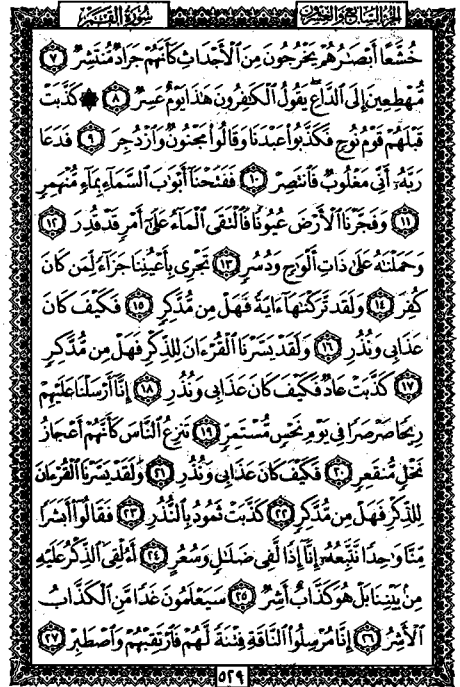 سُورَةُ القَمَرِ الجزء السابع والعشرون
خُشَّعًا أَبْصَٰرُهُمْ يَخْرُجُونَ مِنَ ٱلْأَجْدَاثِ كَأَنَّهُمْ جَرَادٌ مُّنتَشِرٌ ٧
مُّهْطِعِينَ إِلَى ٱلدَّاعِ يَقُولُ ٱلْكَٰفِرُونَ هَٰذَا يَوْمٌ عَسِرٌ ٨ ۞ كَذَّبَتْ
قَبْلَهُمْ قَوْمُ نُوحٍ فَكَذَّبُوا۟ عَبْدَنَا وَقَالُوا۟ مَجْنُونٌ وَٱزْدُجِرَ ٩ فَدَعَا
رَبَّهُۥٓ أَنِّى مَغْلُوبٌ فَٱنتَصِرْ ١٠ فَفَتَحْنَآ أَبْوَٰبَ ٱلسَّمَآءِ بِمَآءٍ مُّنْهَمِرٍ
١١ وَفَجَّرْنَا ٱلْأَرْضَ عُيُونًا فَٱلْتَقَى ٱلْمَآءُ عَلَىٰٓ أَمْرٍ قَدْ قُدِرَ ١٢
وَحَمَلْنَٰهُ عَلَىٰ ذَاتِ أَلْوَٰحٍ وَدُسُرٍ ١٣ تَجْرِى بِأَعْيُنِنَا جَزَآءً لِّمَن كَانَ
كُفِرَ ١٤ وَلَقَد تَّرَكْنَٰهَآ ءَايَةً فَهَلْ مِن مُّدَّكِرٍ ١٥ فَكَيْفَ كَانَ
عَذَابِى وَنُذُرِ ١٦ وَلَقَدْ يَسَّرْنَا ٱلْقُرْءَانَ لِلذِّكْرِ فَهَلْ مِن مُّدَّكِرٍ
١٧ كَذَّبَتْ عَادٌ فَكَيْفَ كَانَ عَذَابِى وَنُذُرِ ١٨ إِنَّآ أَرْسَلْنَا عَلَيْهِمْ
رِيحًا صَرْصَرًا فِى يَوْمِ نَحْسٍ مُّسْتَمِرٍّ ١٩ تَنزِعُ ٱلنَّاسَ كَأَنَّهُمْ أَعْجَازُ
نَخْلٍ مُّنقَعِرٍ ٢٠ فَكَيْفَ كَانَ عَذَابِى وَنُذُرِ ٢١ وَلَقَدْ يَسَّرْنَا ٱلْقُرْءَانَ
لِلذِّكْرِ فَهَلْ مِن مُّدَّكِرٍ ٢٢ كَذَّبَتْ ثَمُودُ بِٱلنُّذُرِ ٢٣ فَقَالُوٓا۟ أَبَشَرًا
مِّنَّا وَٰحِدًا نَّتَّبِعُهُۥٓ إِنَّآ إِذًا لَّفِى ضَلَٰلٍ وَسُعُرٍ ٢٤ أَءُلْقِىَ ٱلذِّكْرُ عَلَيْهِ
مِنۢ بَيْنِنَا بَلْ هُوَ كَذَّابٌ أَشِرٌ ٢٥ سَيَعْلَمُونَ غَدًا مَّنِ ٱلْكَذَّابُ
ٱلْأَشِرُ ٢٦ إِنَّا مُرْسِلُوا۟ ٱلنَّاقَةِ فِتْنَةً لَّهُمْ فَٱرْتَقِبْهُمْ وَٱصْطَبِرْ ٢٧
٥٢٩